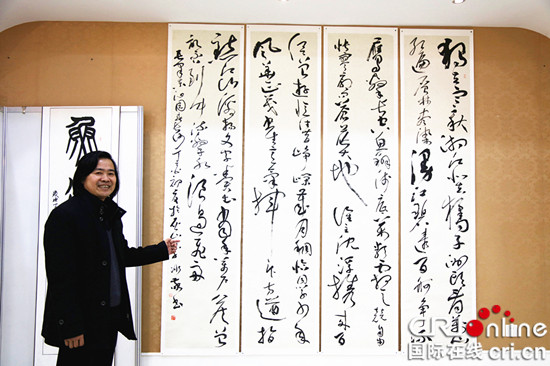 独立寒秋湘江北去橘子洲头看万山
红遍层林尽染漫江碧透百舸争流
鹰击长空鱼翔浅底万类霜天竞自由
怅寥廓问苍茫大地谁主沉浮携来百
侣曾游忆往昔峥嵘岁月稠恰同学少年
风华正茂书生意气挥斥方遒指
点江山激扬文字粪土当年万户侯曾
记否到中流击水浪遏飞舟
毛泽东词沁园春长沙
CRI online
国际在线 cri.cn